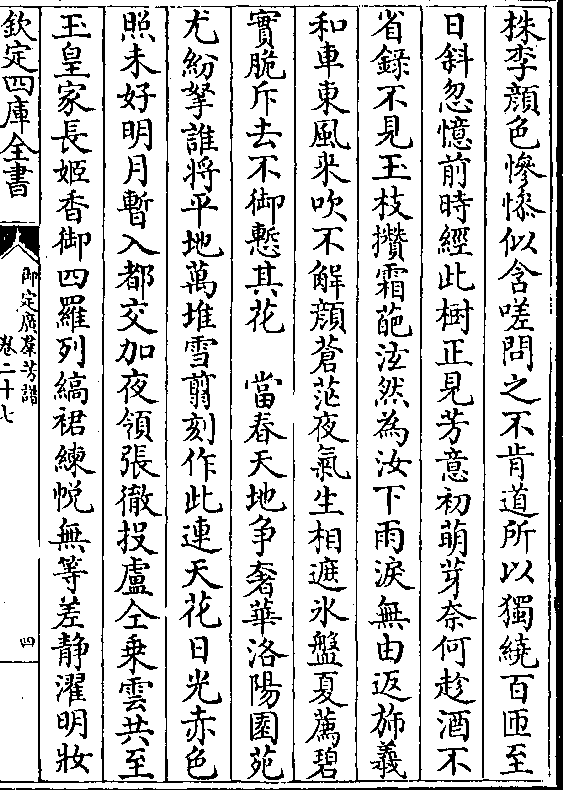 株李顔色慘慘似含嗟問之不肯道所以獨繞百匝至
日斜忽憶前時經此樹正見芳意初萌芽奈何趁酒不
省錄不見玉枝攢霜葩泫然為汝下雨淚無由返斾羲
和車東風来吹不解顔蒼茫夜氣生相遮氷盤夏薦碧
實脆斥去不御慙其花　當春天地争奢華洛陽園苑
尤紛拏誰將平地萬堆雪翦刻作此連天花日光赤色
照未好明月暫入都交加夜領張徹投盧仝乗雲共至
玉皇家長姬香御四羅列縞裙練帨無等差静濯明妝
欽定四庫全書
御定廣羣芳譜
卷二十七
四